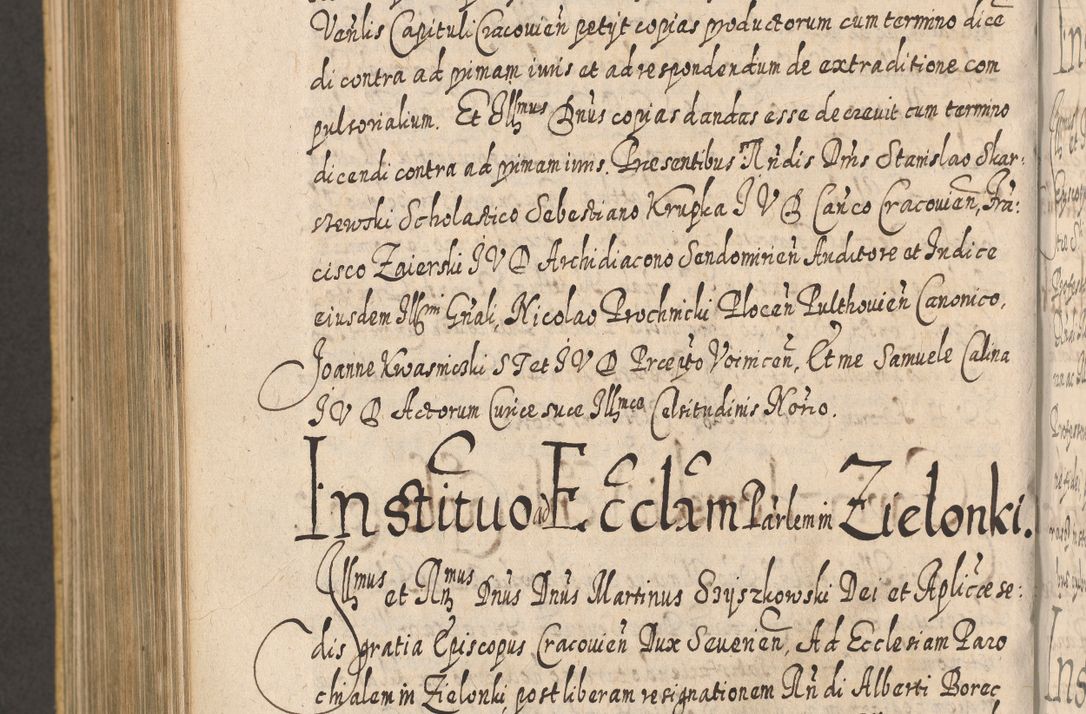 Veñlis Capituli Cracouień petijt copias productorum cum termino dice
di contra ad primam iuris et ad respondendum de extraditione com
pulsorialium. Et Illmus Dnus copias dandas esse decreuit cum termino
dicendi contra ad primam iuris. Presentibus Rndis Dnis Stanislao Skar:
szewski Scholastico Sebestiano Krupka I V D Canco Cracouień, Fra:
cisco Zaierski I V D Archidiacono Sendomirień Auditore et Iudice
eiusdem Illmi Gñali, Nicolao Prochnicki Plocen Pulthouień Canonico,
Joanne Kwasnicski S T et I V D Prcepto Voinicen, Et me Samuele Calina
I V D Actorum Curice suce Illmce Celsitudinis Norio.
Institutio ad Ecclam Parlem in Zielonki.
Illmus et Rmus Dnus Dnus Martinus Szyszkowski Dei et Aplicce se:
dis gratia Episcopus Cracouień Dux Seuerień, Ad Ecclesiam Paro
chialem in Zielonki post liberam resignationem Rndi Alberti Borec